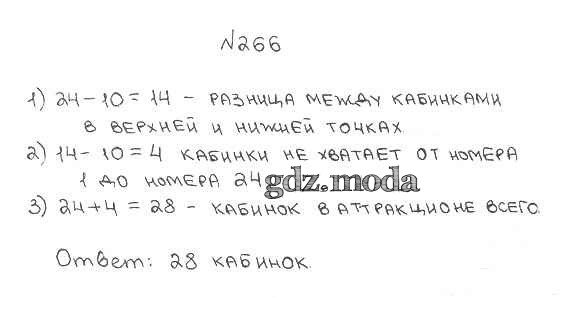 №266
1) 24-10=14 - РАЗНИЦА МЕЖДУ КАБИНКАМИ
В ВЕРХНЕЙ И НИЖНЕЙ ТОЧКАХ
2) 14-10=4 КАБИНКИ НЕ ХВАТАЕТ ОТ НОМЕРА
1 ДО НОМЕРА 24
gdz.moda
3) 24+4=28 - КАБИНОК В АТТРАКЦИОНЕ ВСЕГО.
Ответ: 28 КАБИНОК.